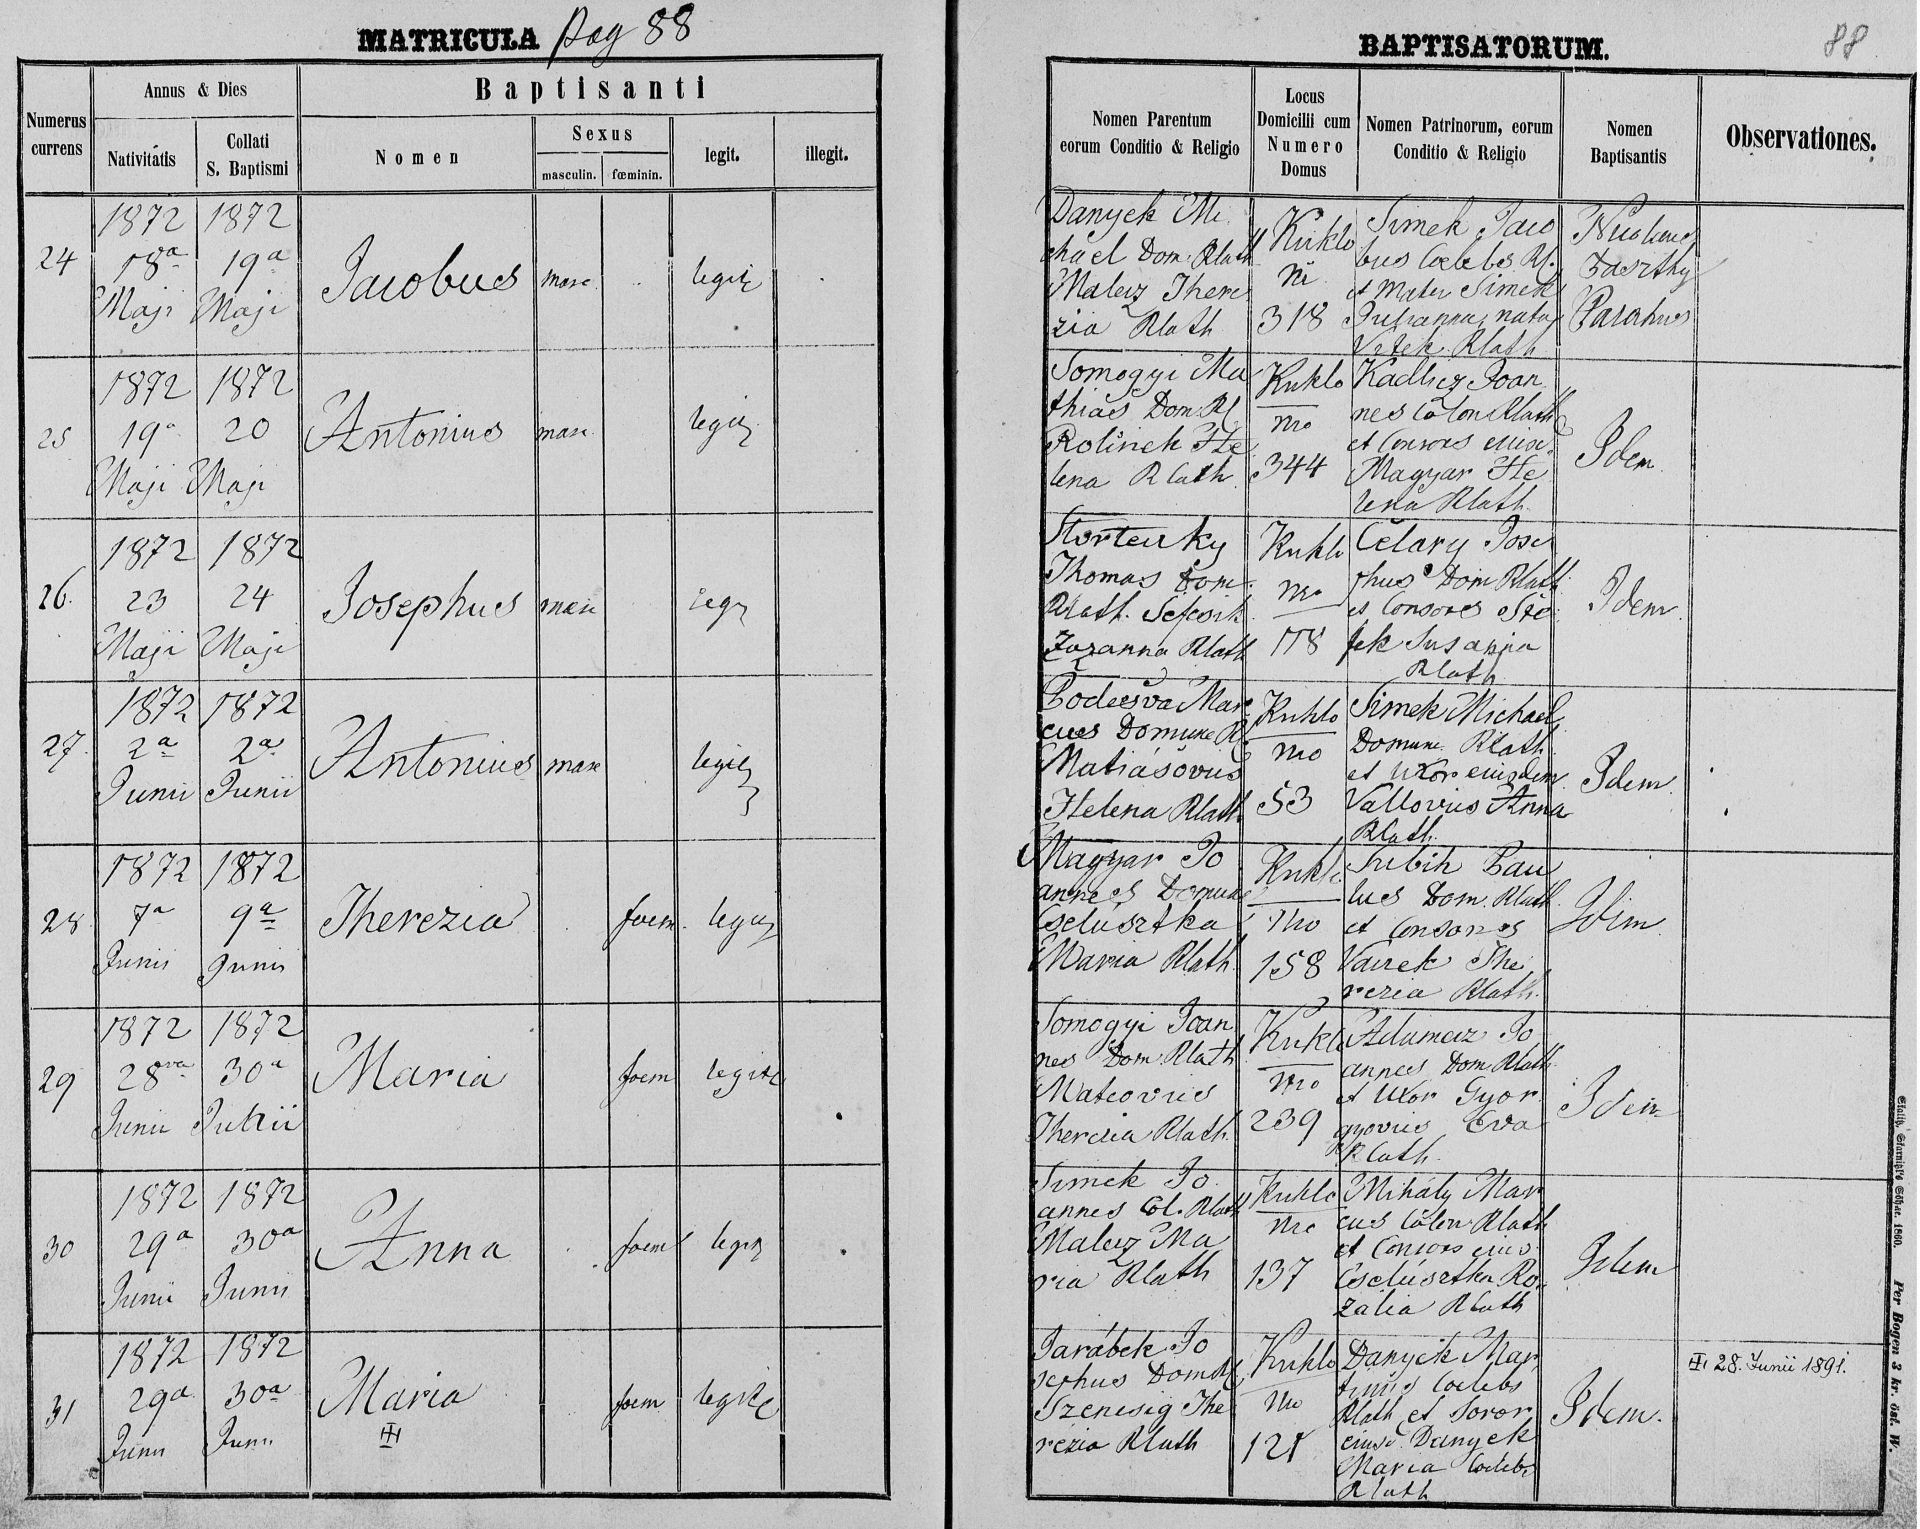 MATRICULA Pag 88
Numerus currens
Annus & Dies
Nativitatis
Collati S. Baptismi
Baptisanti
Nomen
Sexus
masculin. fœminin.
legit.
illegit.
24
1872 1872
18a 19a
Maji Maji
Jacobus masc
25
1872 1872
19a 20
Maji Maji
Antonius masc
26.
1872 1872
23 24
Maji Maji
Josephus masc
27.
1872 1872
2a 2a
Junii Junii
Antonius masc
28
1872 1872
7a 9a
Junii Junii
Therezia foem.
29
1872 1872
28va 30a
Junii
Maria foem
30
1872 1872
29a 30a
Junii Junii
Anna foem
31
1872 1872
29a 30a
Junii Junii
Maria foem
BAPTISATORUM. 88
Nomen Parentum
eorum Conditio & Religio
Locus
Domicilii cum
Numero
Domus
Nomen Patrinorum, eorum
Conditio & Religio
Nomen
Baptisantis
Observationes.
Danyek Mi
chael Dom. Rkath
Malecz There
zia Rkath
Kuklo
ni
318
Simek Jaco
bus Coelebs Rk.
et Mater Simek
Julianna, nata
Vitek Rkath
Parochus
Somogyi Ma
thias Dom. Rk
Rolinek He
lena Rkath.
Kuklo
no
344
Kadlicz Joan
nes Colon Rkath
et Consors eius
Magyar He
lena Rkath.
Idem
Thomas Dom.
Rkath.
Zuzanna Rkath
Kuklo
no
178
Čelary Jose
phus Dom Rkath
et Consors Ste
fek Susanna
Rkath
Idem
Bodišva Mar
cus Domune Rk
Matiašovics
Helena Rkath
Kuklo
no
53
Simek Michael
Domune Rkath.
et Uxor eiusdem
Vallovics Anna
Rkath.
Idem.
Magyar Jo
annes Domune
Cselusztka
Maria Rkath.
Kuklo
no
158
Srebih Pau
lus Dom. Rkath.
et Consors
Vavrek The
rezia Rkath.
Idem
Somogyi Joan
nes Dom Rkath
Matcovics
Therezia Rkath.
Kuklo
no
239
Adamecz Jo
annes Dom Rkath.
et Uxor Gyor
gyovics Eva
Rkath.
Idem
Simek Jo
annes Col. Rkath
Malecz Ma
ria Rkath
Kuklo
no
137
Mihály Mar
cus Colon Rkath
et Consors eius
Cselusztka Ro
zalia Rkath
Idem
Jarábek Jo
sephus Dom Rk
Szenesig The
rezia Rkath
Kuklo
no
121
Danyek Mar
tinus Coelebs
Rkath et Soror
eiusd. Danyek
Maria Coelebs
Rkath
Idem.
28. Junii 1891.
Per Bogen 3 kr. öst. W.